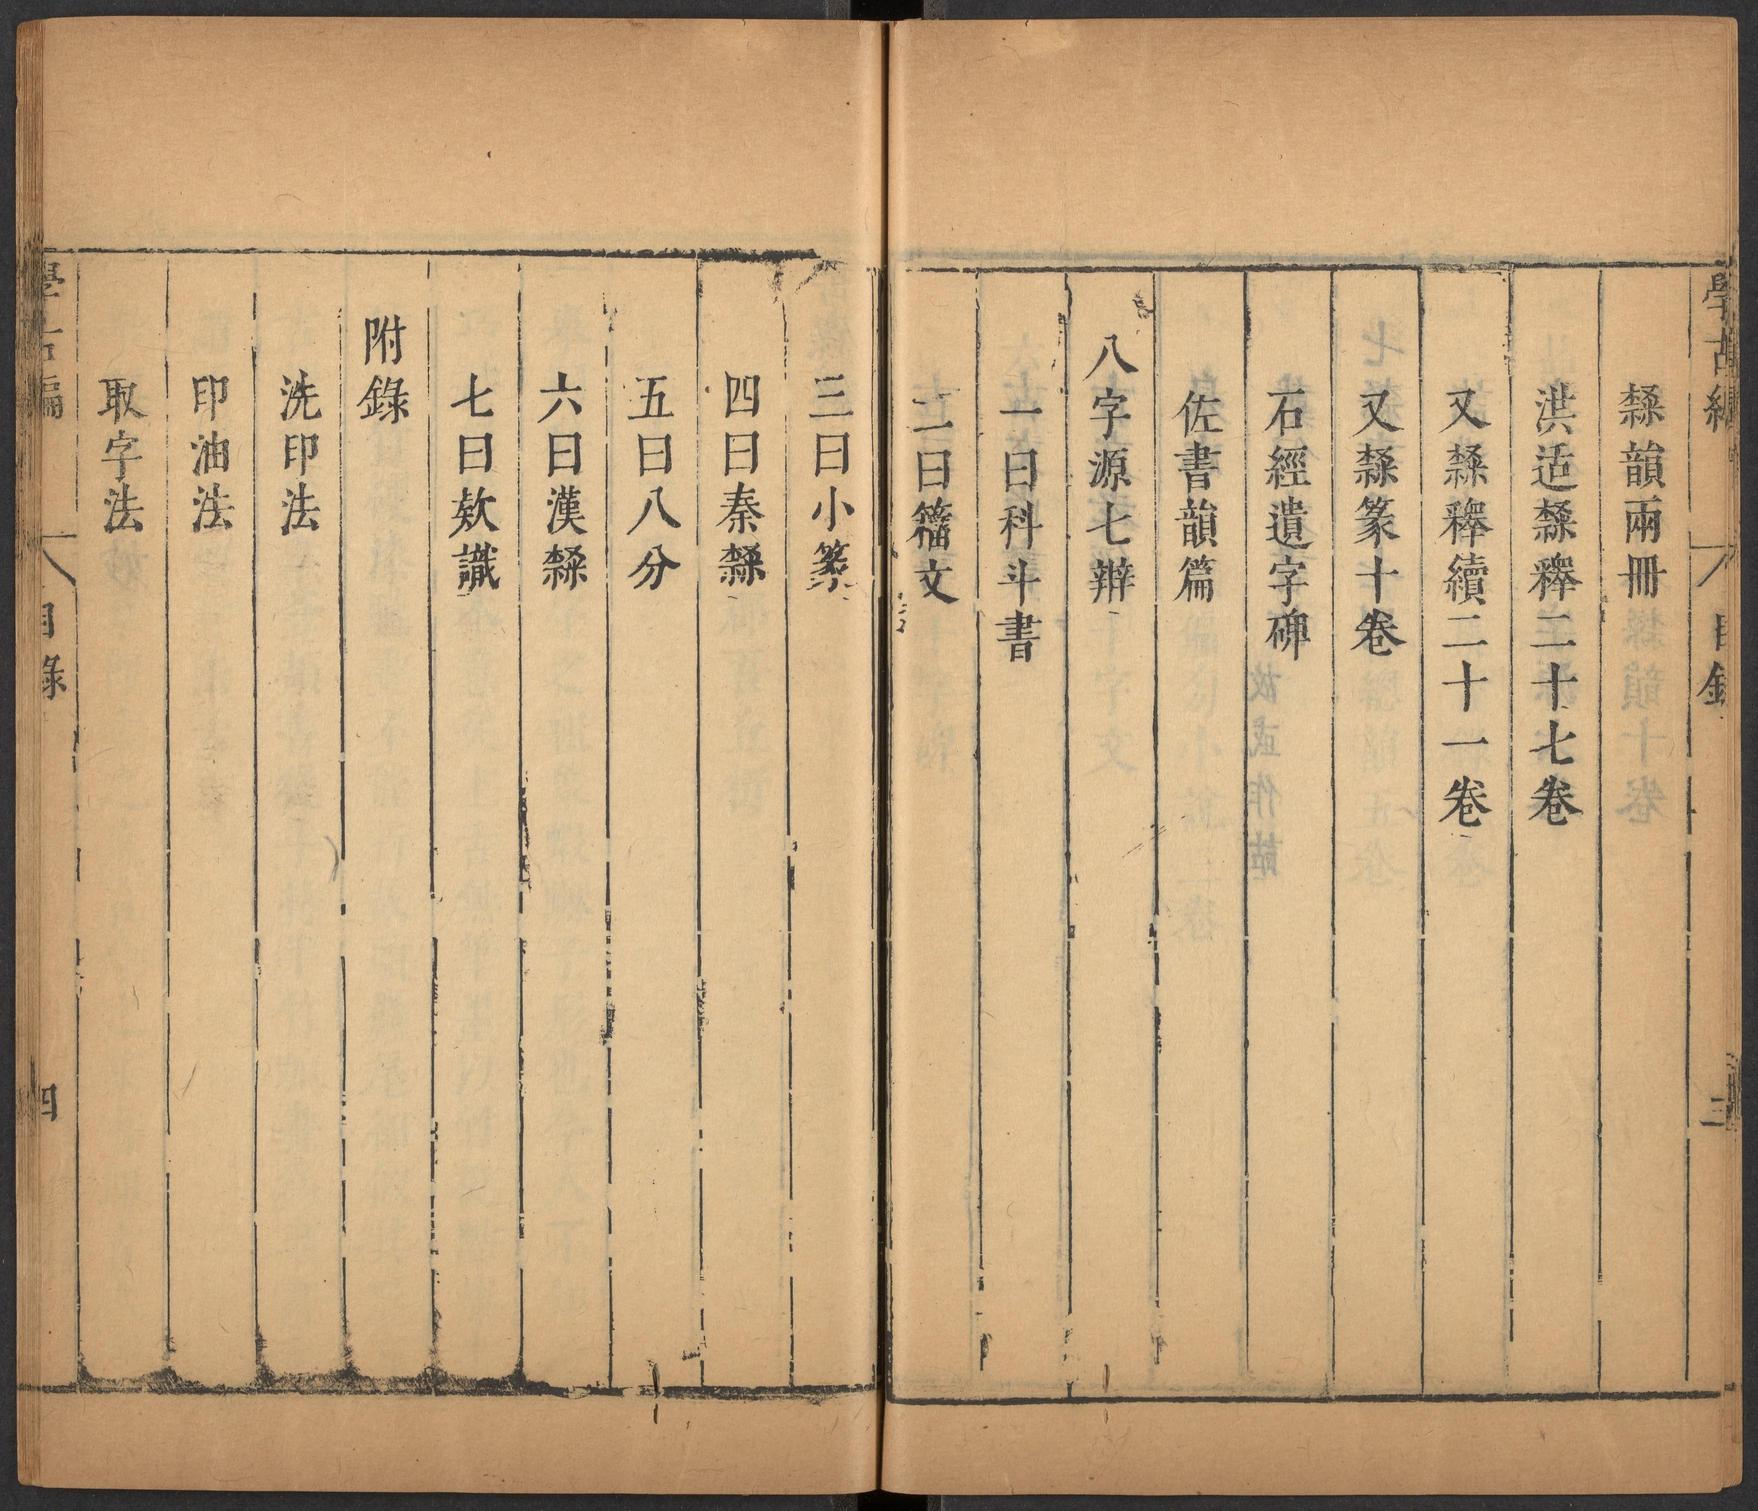 學古編
目錄
三
隸韻兩冊
洪适隸釋二十七卷
又隸釋續二十一卷
又隸篆十卷
石經遺字碑
佐書韻篇
八字源七辯
一曰科斗書
二曰籀文
三曰小篆
四曰秦隸
五曰八分
六曰漢隸
七曰款識
附錄
洗印法
印油法
取字法
學古編
目錄
四